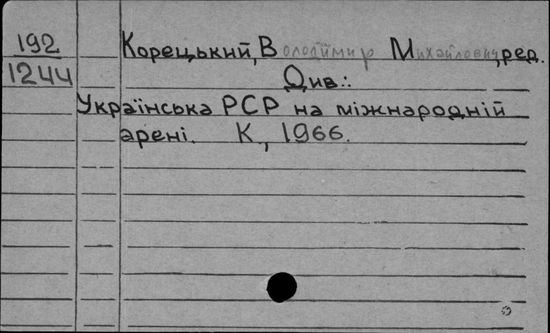 192
1244
Корецький, Володимир Михайлович, ред.
Див.:
Українська РСР на міжнародній
арені. К., 1966.